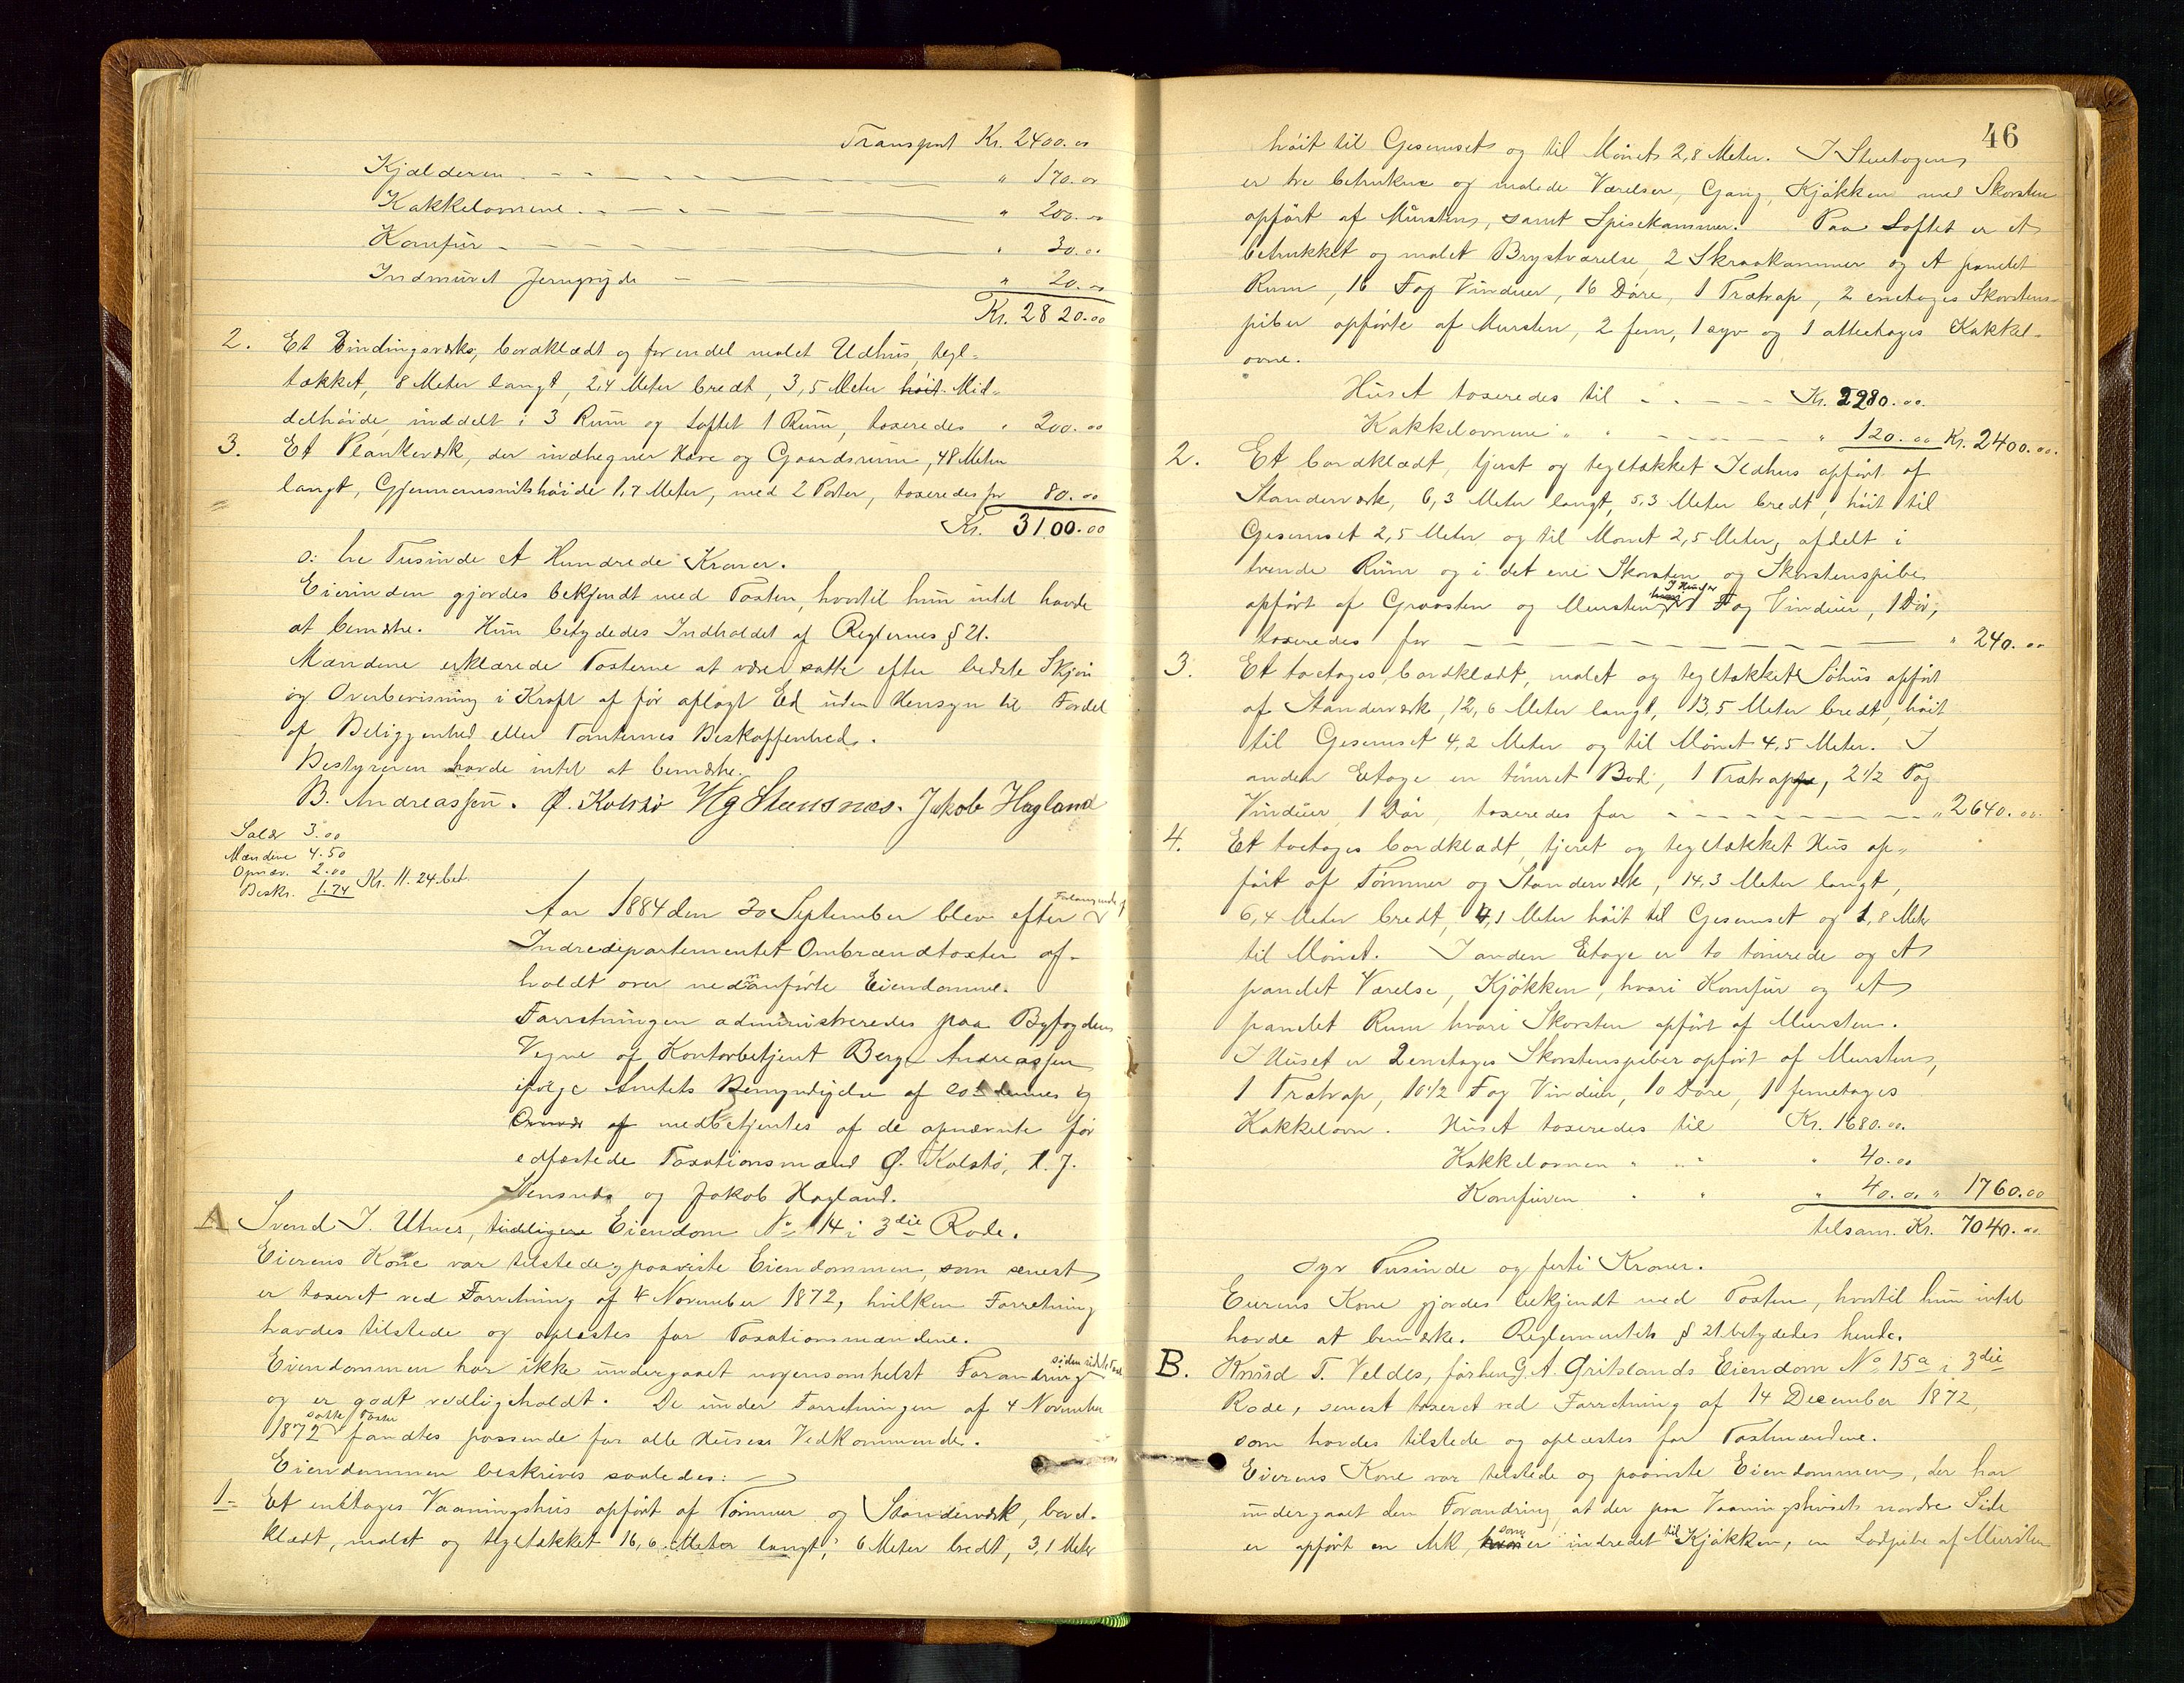 Transport Kr. 2400.00
Kjælderen " 170.00
Kakkelovnene " 200.00
Komfür " 30.00
Indmüret Jerngryde " 20.00
Kr. 2820.00
2. Et Bindingsværks, bordklædt og for endel malet Udhüs, tegl-
tækket, 8 Meter langt, 2,4 Meter bredt, 3,5 Meter høit Mid-
delhøide, inddelt i 3 Rüm og Loftet 1 Rüm, taxeredes " 200.00
3. Et Plankeværk, der indhegner Have og Gaardsrüm, 48 Meter
langt, Gjennemsnitshøide 1,7 Meter, med 2 Porter, taxeredes for 80.00
Kr. 3100.00
o: tre Tusinde et Hundrede Kroner.
Eierinden gjordes bekjendt med Taxten, hvortil hün intet havde
at bemærke. Hün betydedes Indholdet af Reglernes § 21.
Mændene erklærede Taxterne at være satte efter bedste Skjøn
og Overbevisning i Kraft af før aflagt Ed üden Hensyn til Fordel
af Beliggenhed eller Tomternes Beskaffenhed.
Bestyreren havde intet at bemærke.
B. Andreassen. Ø. Kolstø Jakob Hagland
Salær 3.00
Mændene 4.50
Opnæv. 2.00
Beskr. 1.74 Kr. 11.24 bet.
Aar 1884 den 30 September blev efter Forlangende af
Indredepartementet Ombrændtaxten af-
holdt over nedenanførte Eiendomme.
Forretningen administreredes paa Byfogdens
Vegne af Kontorbetjent Berge Andreassen
ifølge Amtets Bemyndigelse af 20 dennes og
medbetjentes af de opnævnte før
edfæstede Taxationsmænd Ø. Kolstø, T. J.
Stensnæs og Jakob Hagland.
A Svend J. Utnes, tidligere Eiendom No 14 i 3die Rode.
Eierens Kone var tilstede og paaviste Eiendommen, som senest
er taxeret ved Forretning af 4 November 1872, hvilken Forretning
havdes tilstede og oplæstes for Taxationsmændene.
Eiendommen har ikke ündergaaet nogensomhelst Forandring siden sidste Taxt
og er godt vedligeholdt. De ünder Forretningen af 4 November
1872 satte Taxter fandtes passende for alle Hüses Vedkommende.
Eiendommen beskrives saaledes:
1. Et enetages Vaaningshüs opført af Tømmer og Standerværk, bord-
klædt, malet og tegltækket 16,6 Meter langt, 6 Meter bredt, 3,1 Meter
46
høit til Gesemset og til Mønet 2,8 Meter. I Stuetagen
er tre betrukne og malede Værelser, Gang, Kjøkken med Skorsten
opført af Mürsten, samt Spisekammer. Paa Loftet er et
betrukket og malet Brystværelse, 2 Skraakammer og et panelet
Rum, 16 Fag Vinduer, 16 Døre, 1 Trætrap, 2 enetages Skorstens-
piber opførte af Mursten, 2 fem, 1 syv og 1 otteetages Kakkel-
ovne.
Hüset taxeredes til Kr. 2280.00
Kakkelovnene " " " 120.00 Kr. 2400.00
2. Et bordklædt, tjæret og tegltækket Ildhus opført af
Standerværk, 6,3 Meter langt, 5,3 Meter bredt, høit til
Gesemset 2,5 Meter og til Mønet 2,5 Meter, afdelt i
tvende Rüm og i det ene Skorsten og Skorstenspibe
opført af Graasten og Mursten. I Huset er 1 Fag Vindüer, 1 Dør,
taxeredes for " 240.00
3. Et toetages, bordklædt, malet og tegltækket Søhüs opført
af Standerværk, 12,6 Meter langt, 13,5 Meter bredt, høit
til Gesemset 4,2 Meter og til Mønet 4,5 Meter. I
anden Etage en tømret Bod, 1 Trætrappe, 2 1/2 Fag
Vindüer, 1 Dør, taxeredes for " 2640.00
4. Et toetages bordklædt, tjæret og tegltækket Hüs op-
ført af Tømmer og Standerværk, 14,3 Meter langt,
6,4 Meter bredt, 4,1 Meter høit til Gesemset og 1,8 Meter
til Mønet. I anden Etage er to tømrede og et
panelet Værelse, Kjøkken, hvori Komfür og et
panelet Rum hvori Skorsten opført af Mursten.
I Hüset er 2 enetages Skorstenspiber opført af Mursten,
1 Trætrap, 10 1/2 Fag Vindüer, 10 Døre, 1 femetages
Kakkelovn. Hüset taxeredes til Kr. 1680.00
Kakkelovnen " " " " 40.00
Komfüren " " " 40.00 " 1760.00
tilsam. Kr. 7040.00
Syv Tusinde og førti Kroner.
Eierens Kone gjordes bekjendt med Taxten, hvortil hün intet
havde at bemærke. Reglementets § 21 betydedes hende.
B. Knüd T. Veldes, forhen G. A. Gritslands Eiendom No 15a i 3die
Rode, senest taxeret ved Forretning af 14 December 1872,
som havdes tilstede og oplæstes for Taxtmændene.
Eierens Kone var tilstede og paaviste Eiendommen, der har
ündergaaet den Forandring, at der paa Vaaningshüsets nordre Side
er opført en Ark, som er indredet til Kjøkken, en Lodpibe af Mürsten